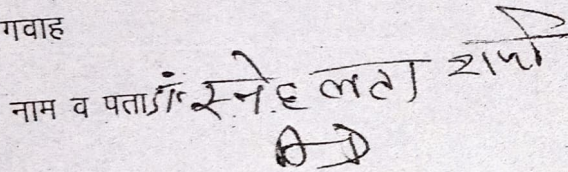 गवाह
नाम व पता डॉ. स्नेह लता शर्मा